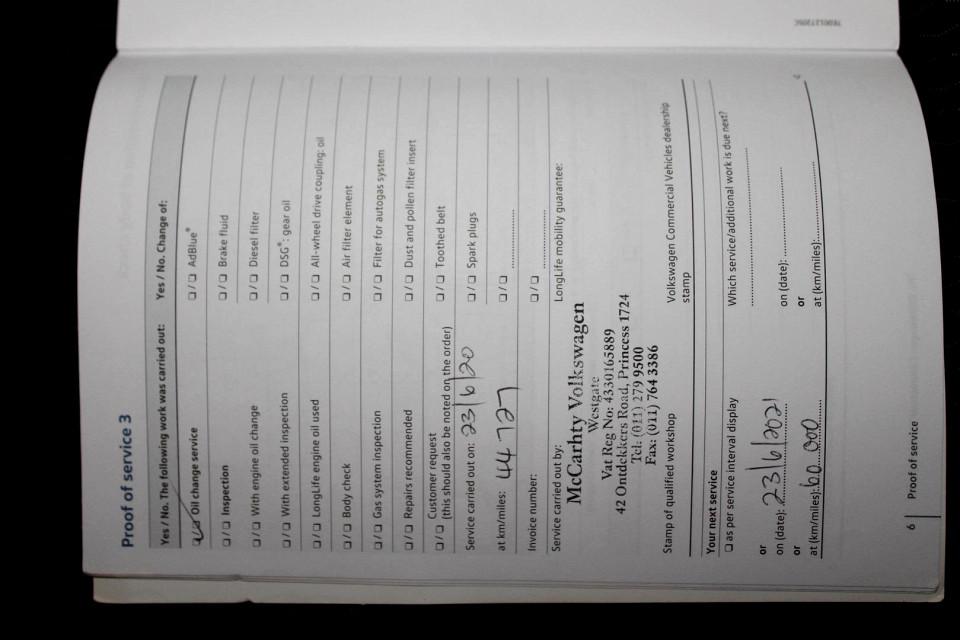 Proof of service 3
Yes / No. The following work was carried out:
☑/☐ Oil change service
☐/☐ Inspection
☐/☐ With engine oil change
☐/☐ With extended inspection
☐/☐ LongLife engine oil used
☐/☐ Body check
☐/☐ Gas system inspection
☐/☐ Repairs recommended
Customer request
☐/☐ (this should also be noted on the order)
Service carried out on: 23/6/20
at km/miles: 44 727
Invoice number:
Yes / No. Change of:
☐/☐ AdBlue®
☐/☐ Brake fluid
☐/☐ Diesel filter
☐/☐ DSG®: gear oil
☐/☐ All-wheel drive coupling: oil
☐/☐ Air filter element
☐/☐ Filter for autogas system
☐/☐ Dust and pollen filter insert
☐/☐ Toothed belt
☐/☐ Spark plugs
☐/☐ ....................
☐/☐ ....................
Service carried out by:
McCarhty Volkswagen
Westgate
Vat Reg No: 4330165889
42 Ontdekkers Road, Princess 1724
Tel: (011) 279 9500
Fax: (011) 764 3386
Stamp of qualified workshop
LongLife mobility guarantee:
Volkswagen Commercial Vehicles dealership
stamp
Your next service
☐ as per service interval display
or
on (date): 23/6/2021
or
at (km/miles): 60 000
Which service/additional work is due next?
....................
on (date): ....................
or
at (km/miles): ....................
6
Proof of service